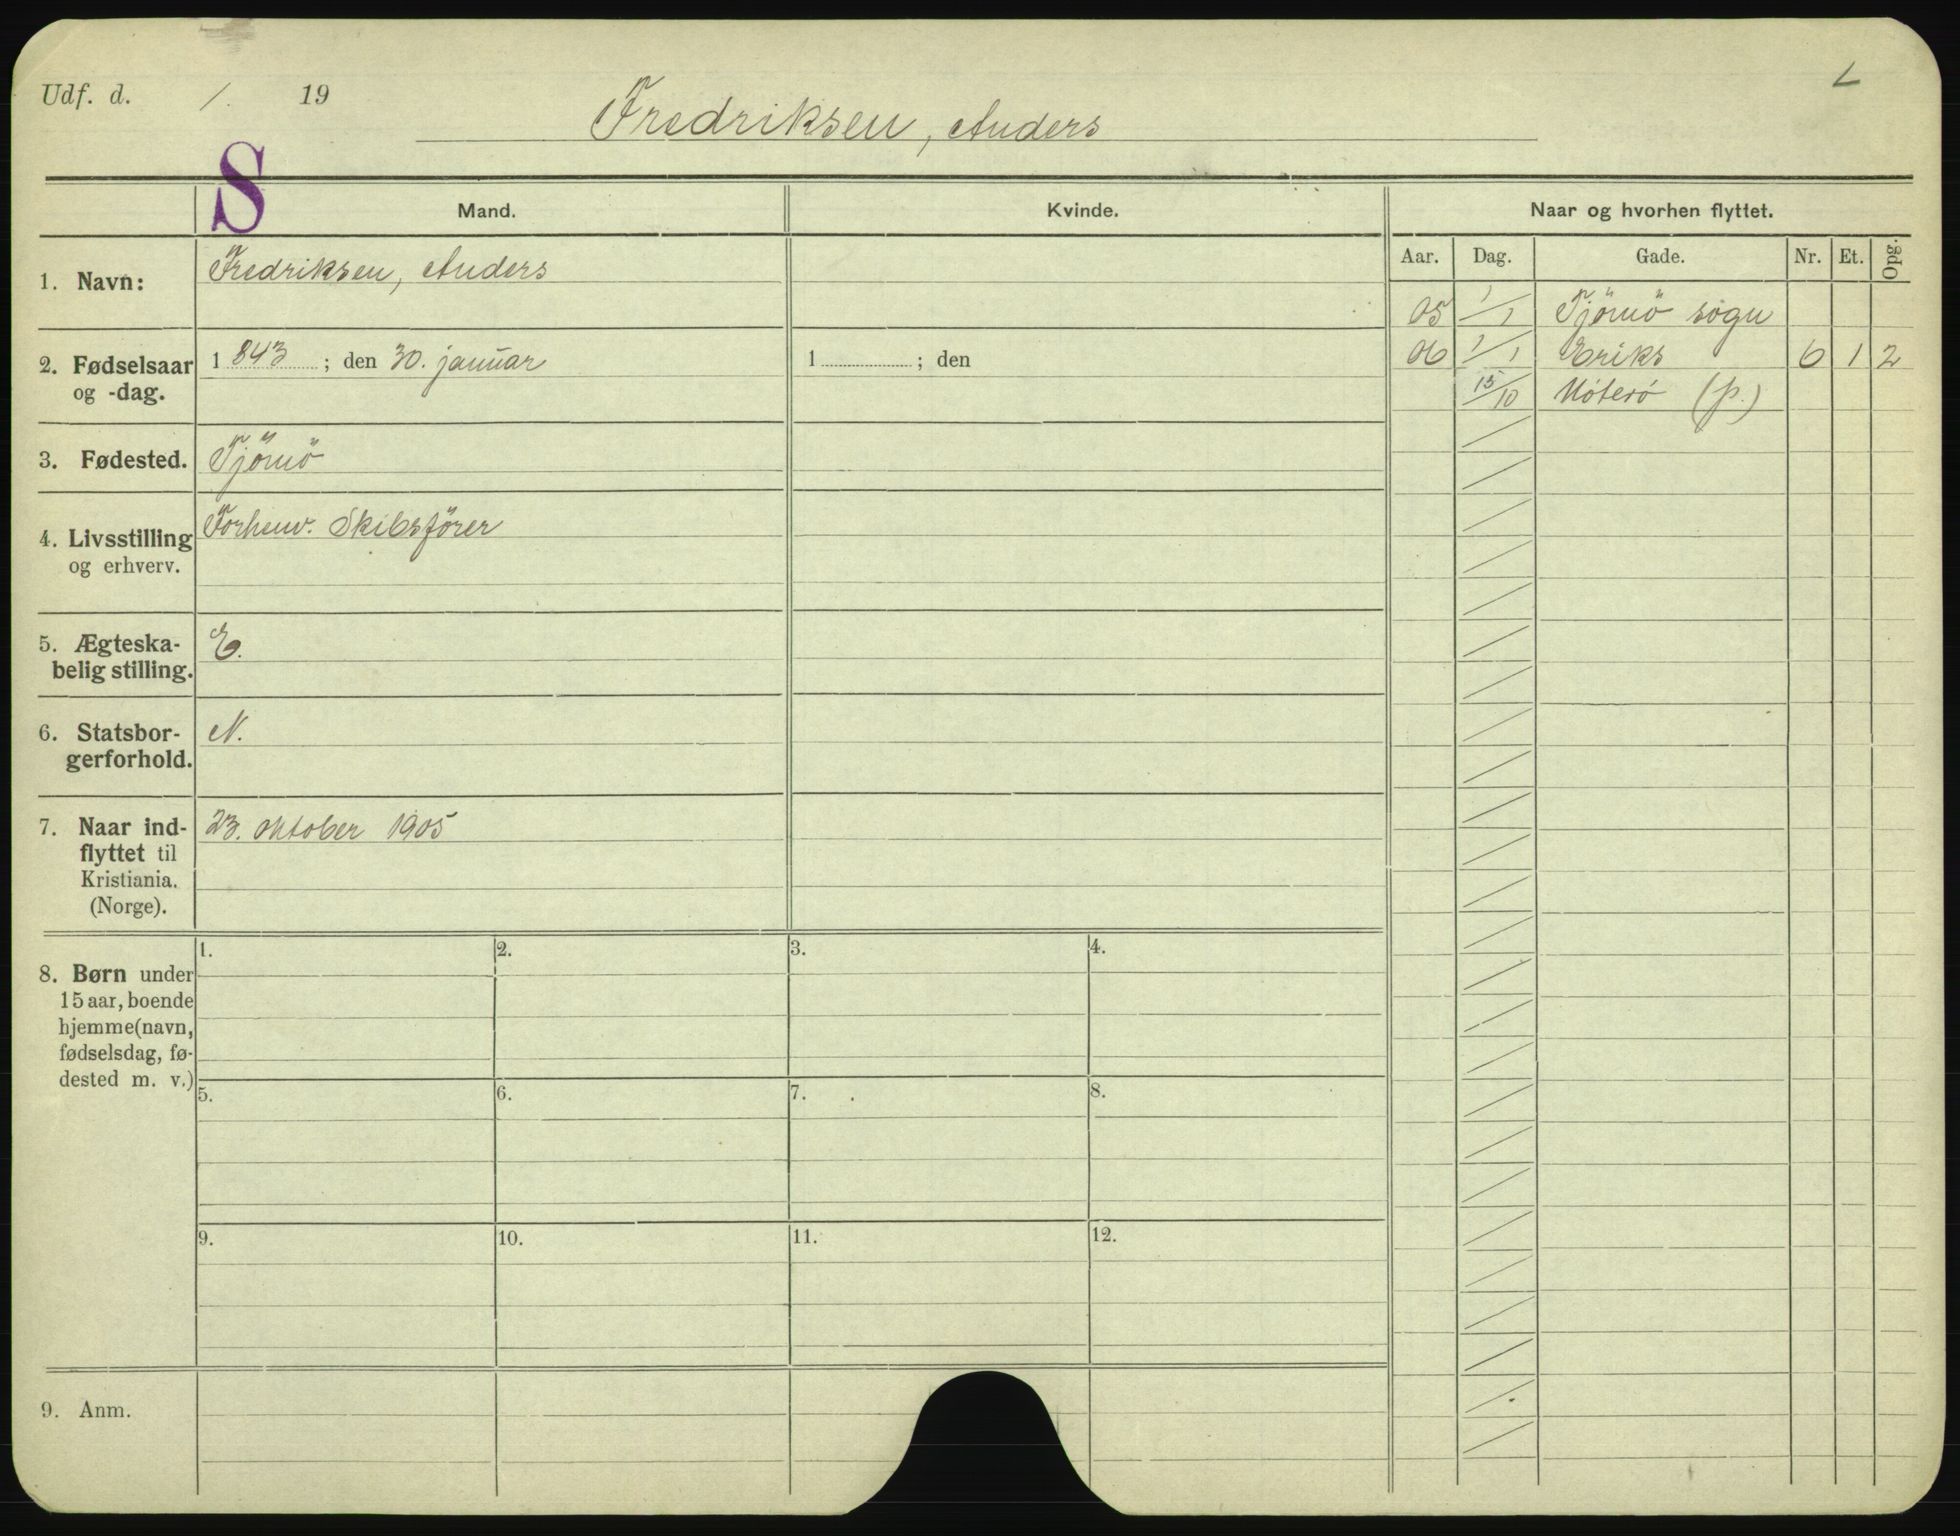 Udf. d. / . 19
Fredriksen, Anders
S
Mand.
Kvinde.
Naar og hvorhen flyttet.
Aar. Dag. Gade. Nr. Et. Opg.
1. Navn: Fredriksen, Anders
2. Fødselsaar og -dag.
1 843 ; den 30. januar
1 ; den
3. Fødested. Tjömö
4. Livsstilling og erhverv.
Forhenv. Skibsförer
5. Ægteska-
belig stilling.
E.
6. Statsbor-
gerforhold.
N.
7. Naar ind-
flyttet til
Kristiania.
(Norge).
23. oktober 1905
8. Børn under
15 aar, boende
hjemme (navn,
fødselsdag, fø-
dested m. v.)
1. 2. 3. 4.
5. 6. 7. 8.
9. 10. 11. 12.
9. Anm.
05 1/1 Tjömö sogn
06 1/1 Eriks 6 1 2
15/10 Nöterö (p.)